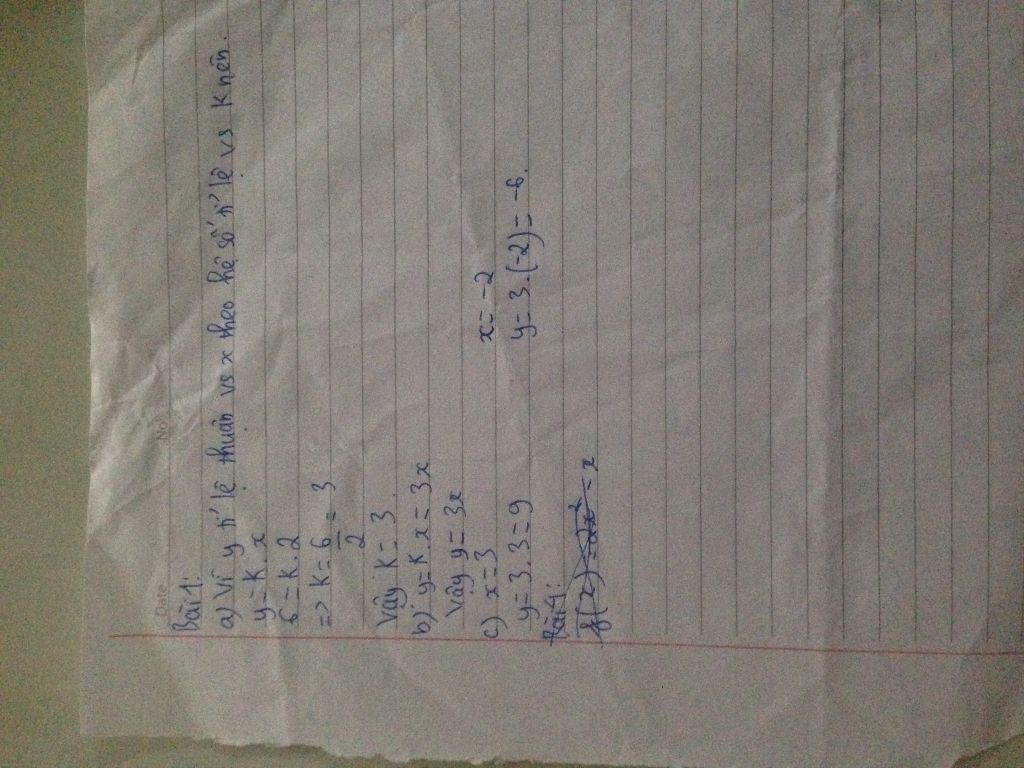 Date No
Bài 1:
a) Vì y tỉ lệ thuận vs x theo hệ số tỉ lệ vs K nên.
y = K . x
6 = K . 2
=> K = 6/2 = 3
Vậy K = 3.
b) y = K . x = 3x
Vậy y = 3x
c) x = 3 x = -2
y = 3 . 3 = 9 y = 3 . (-2) = -6.
Bài 4:
f(x) = 2x² = x